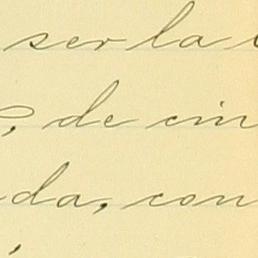 ser la
, de cin
da, con